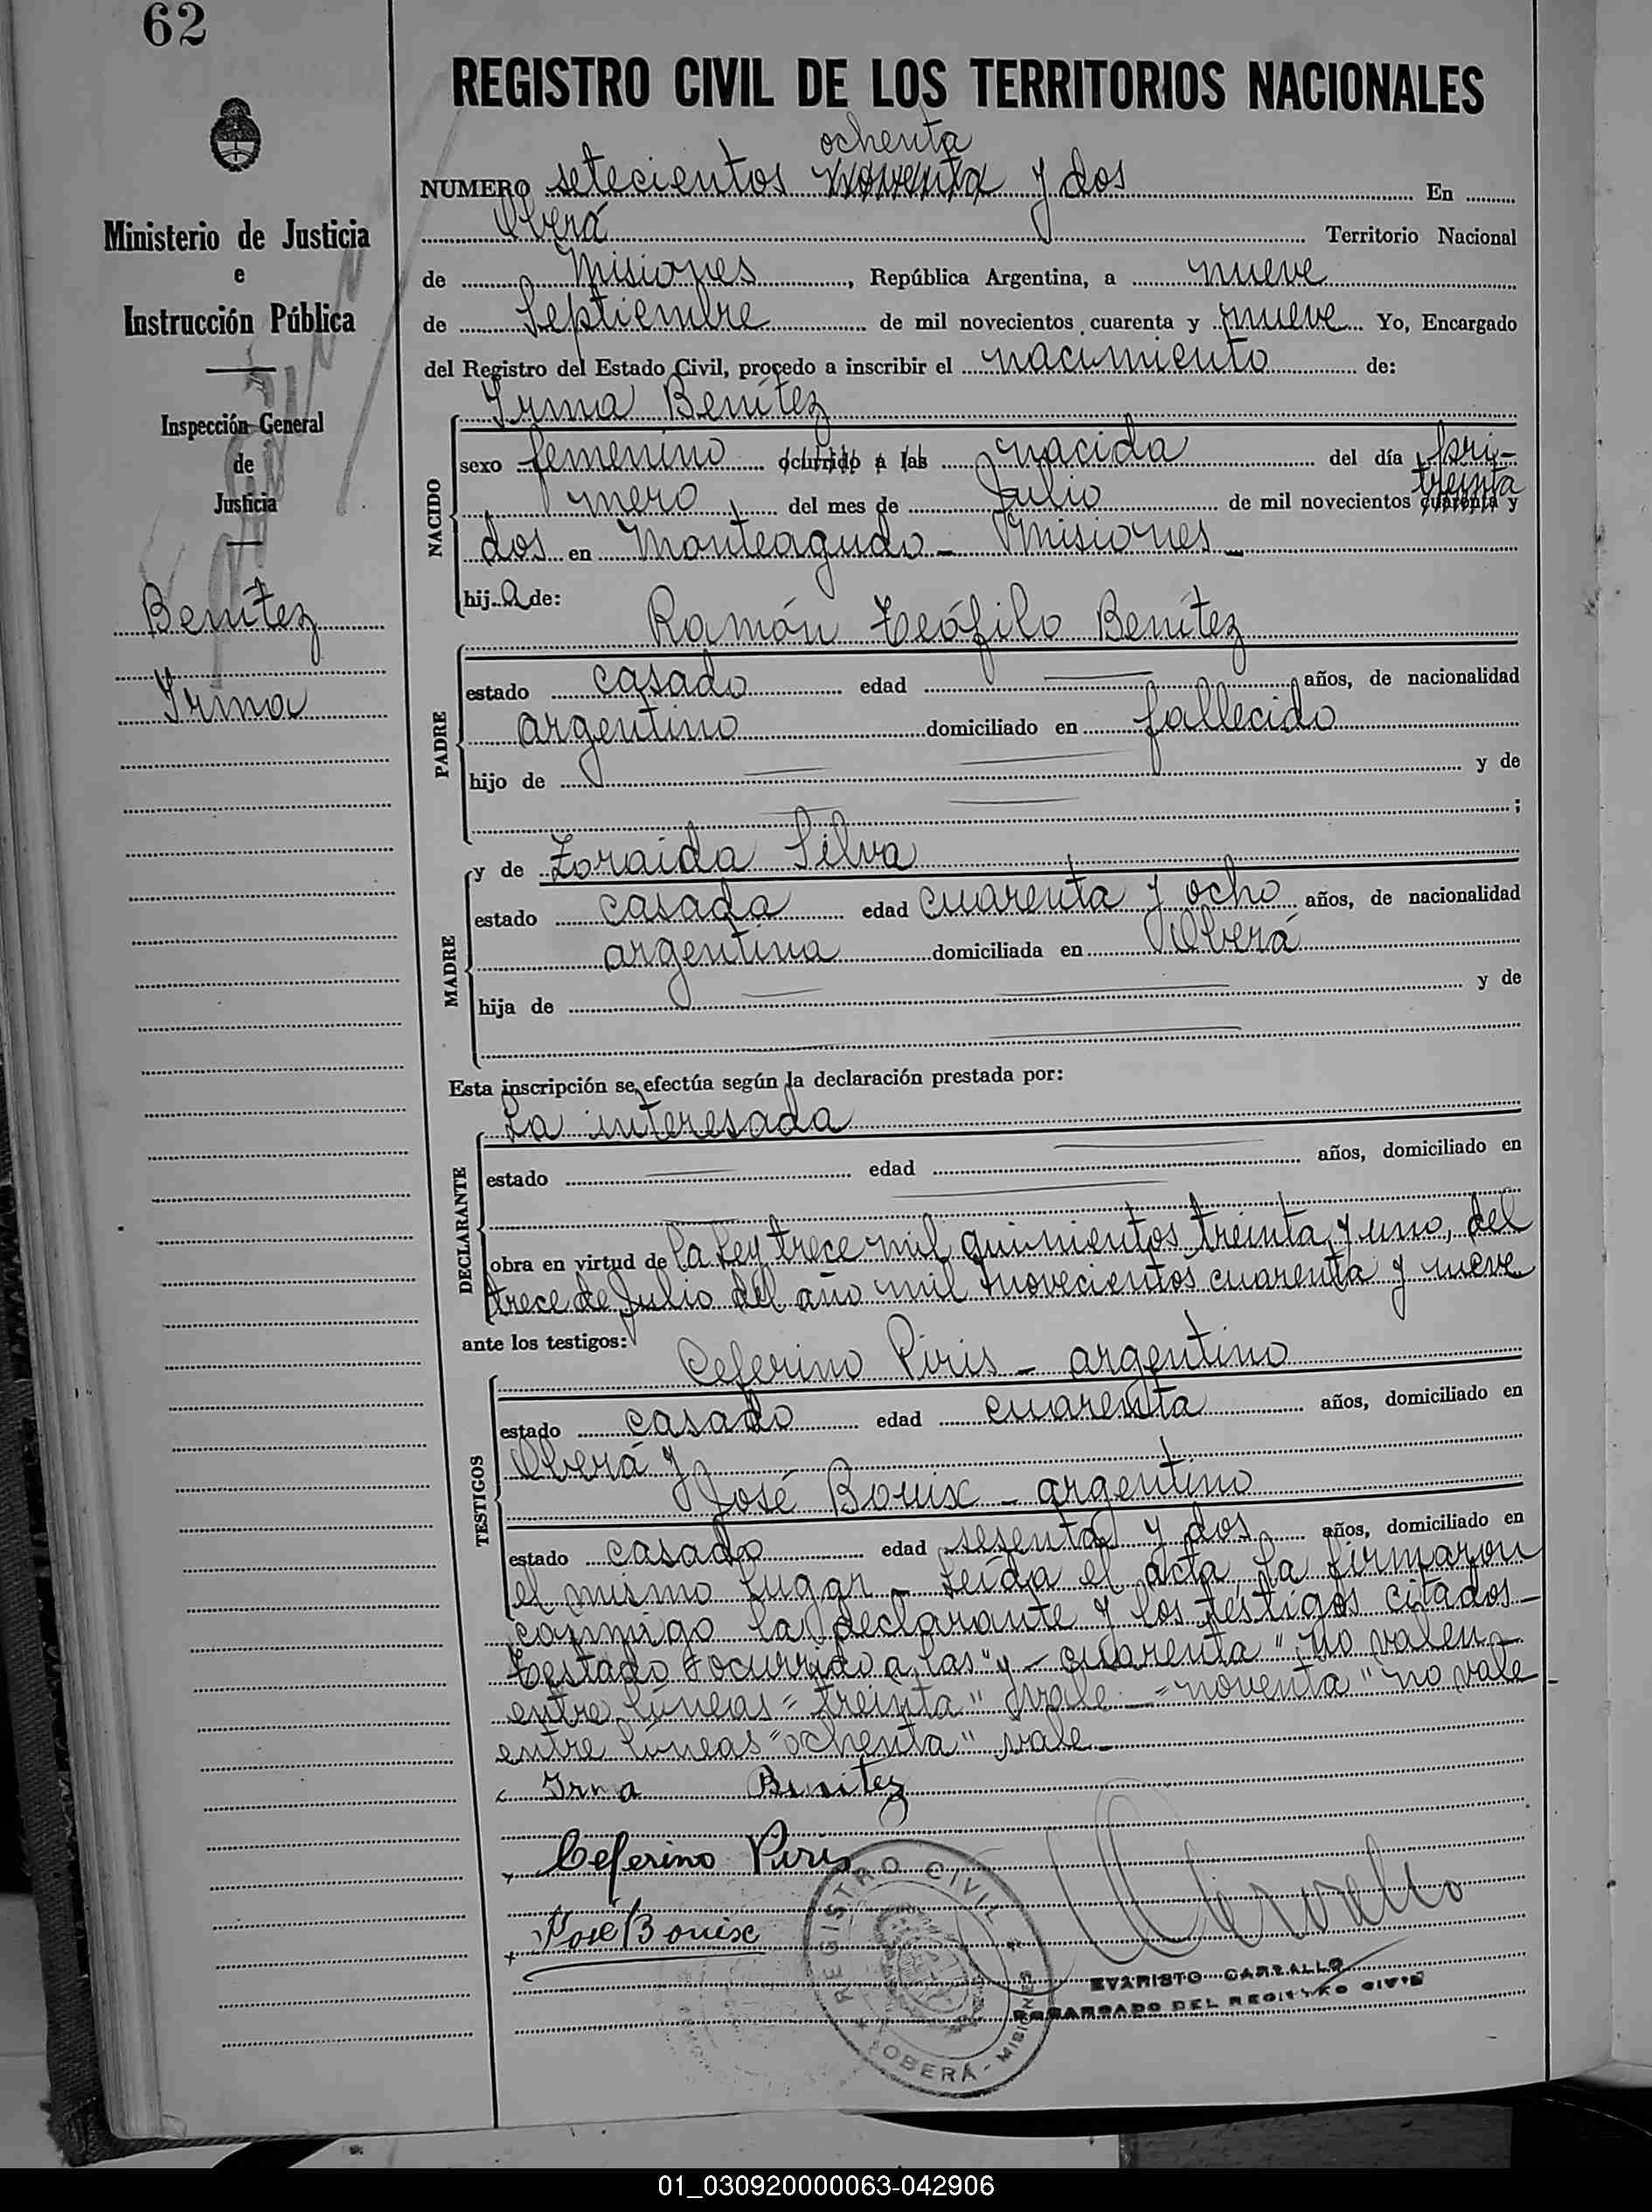 62
REGISTRO CIVIL DE LOS TERRITORIOS NACIONALES
ochenta
NUMERO setecientos noventa y dos En
Oberá Territorio Nacional
de Misiones, República Argentina, a nueve
de Septiembre de mil novecientos cuarenta y nueve Yo, Encargado
del Registro del Estado Civil, procedo a inscribir el nacimiento de:
Irma Benítez
NACIDO
sexo femenino ocurrido a las nacida del día pri-
treinta
mero del mes de Julio de mil novecientos cuarenta y
dos en Monteagudo - Misiones -
hija de:
PADRE
Ramón Teófilo Benítez
estado casado edad años, de nacionalidad
argentino domiciliado en fallecido
hijo de y de
;
MADRE
y de Zoraida Silva
estado casada edad cuarenta y ocho años, de nacionalidad
argentina domiciliada en Oberá
hija de y de
Esta inscripción se efectúa según la declaración prestada por:
DECLARANTE
La interesada
estado edad años, domiciliado en
obra en virtud de la Ley trece mil quinientos treinta y uno, del
trece de Julio del año mil novecientos cuarenta y nueve
ante los testigos:
TESTIGOS
Ceferino Piris - argentino
estado casado edad cuarenta años, domiciliado en
Oberá y
José Bouix - argentino
estado casado edad sesenta y dos años, domiciliado en
el mismo lugar - Leída el acta, la firmaron
conmigo la declarante y los testigos citados -
Testado "ocurrido a las" y - cuarenta" no valen -
entre líneas "treinta" vale - "noventa" no vale
entre líneas "ochenta" vale -
Irma Benitez
Ceferino Piris
José Bouix
REGISTRO CIVIL
OBERÁ - MISIONES
EVARISTO CARBALLO
ENCARGADO DEL REGISTRO CIVIL
Ministerio de Justicia
e
Instrucción Pública
Inspección General
de
Justicia
Benítez
Irma
01_030920000063-042906